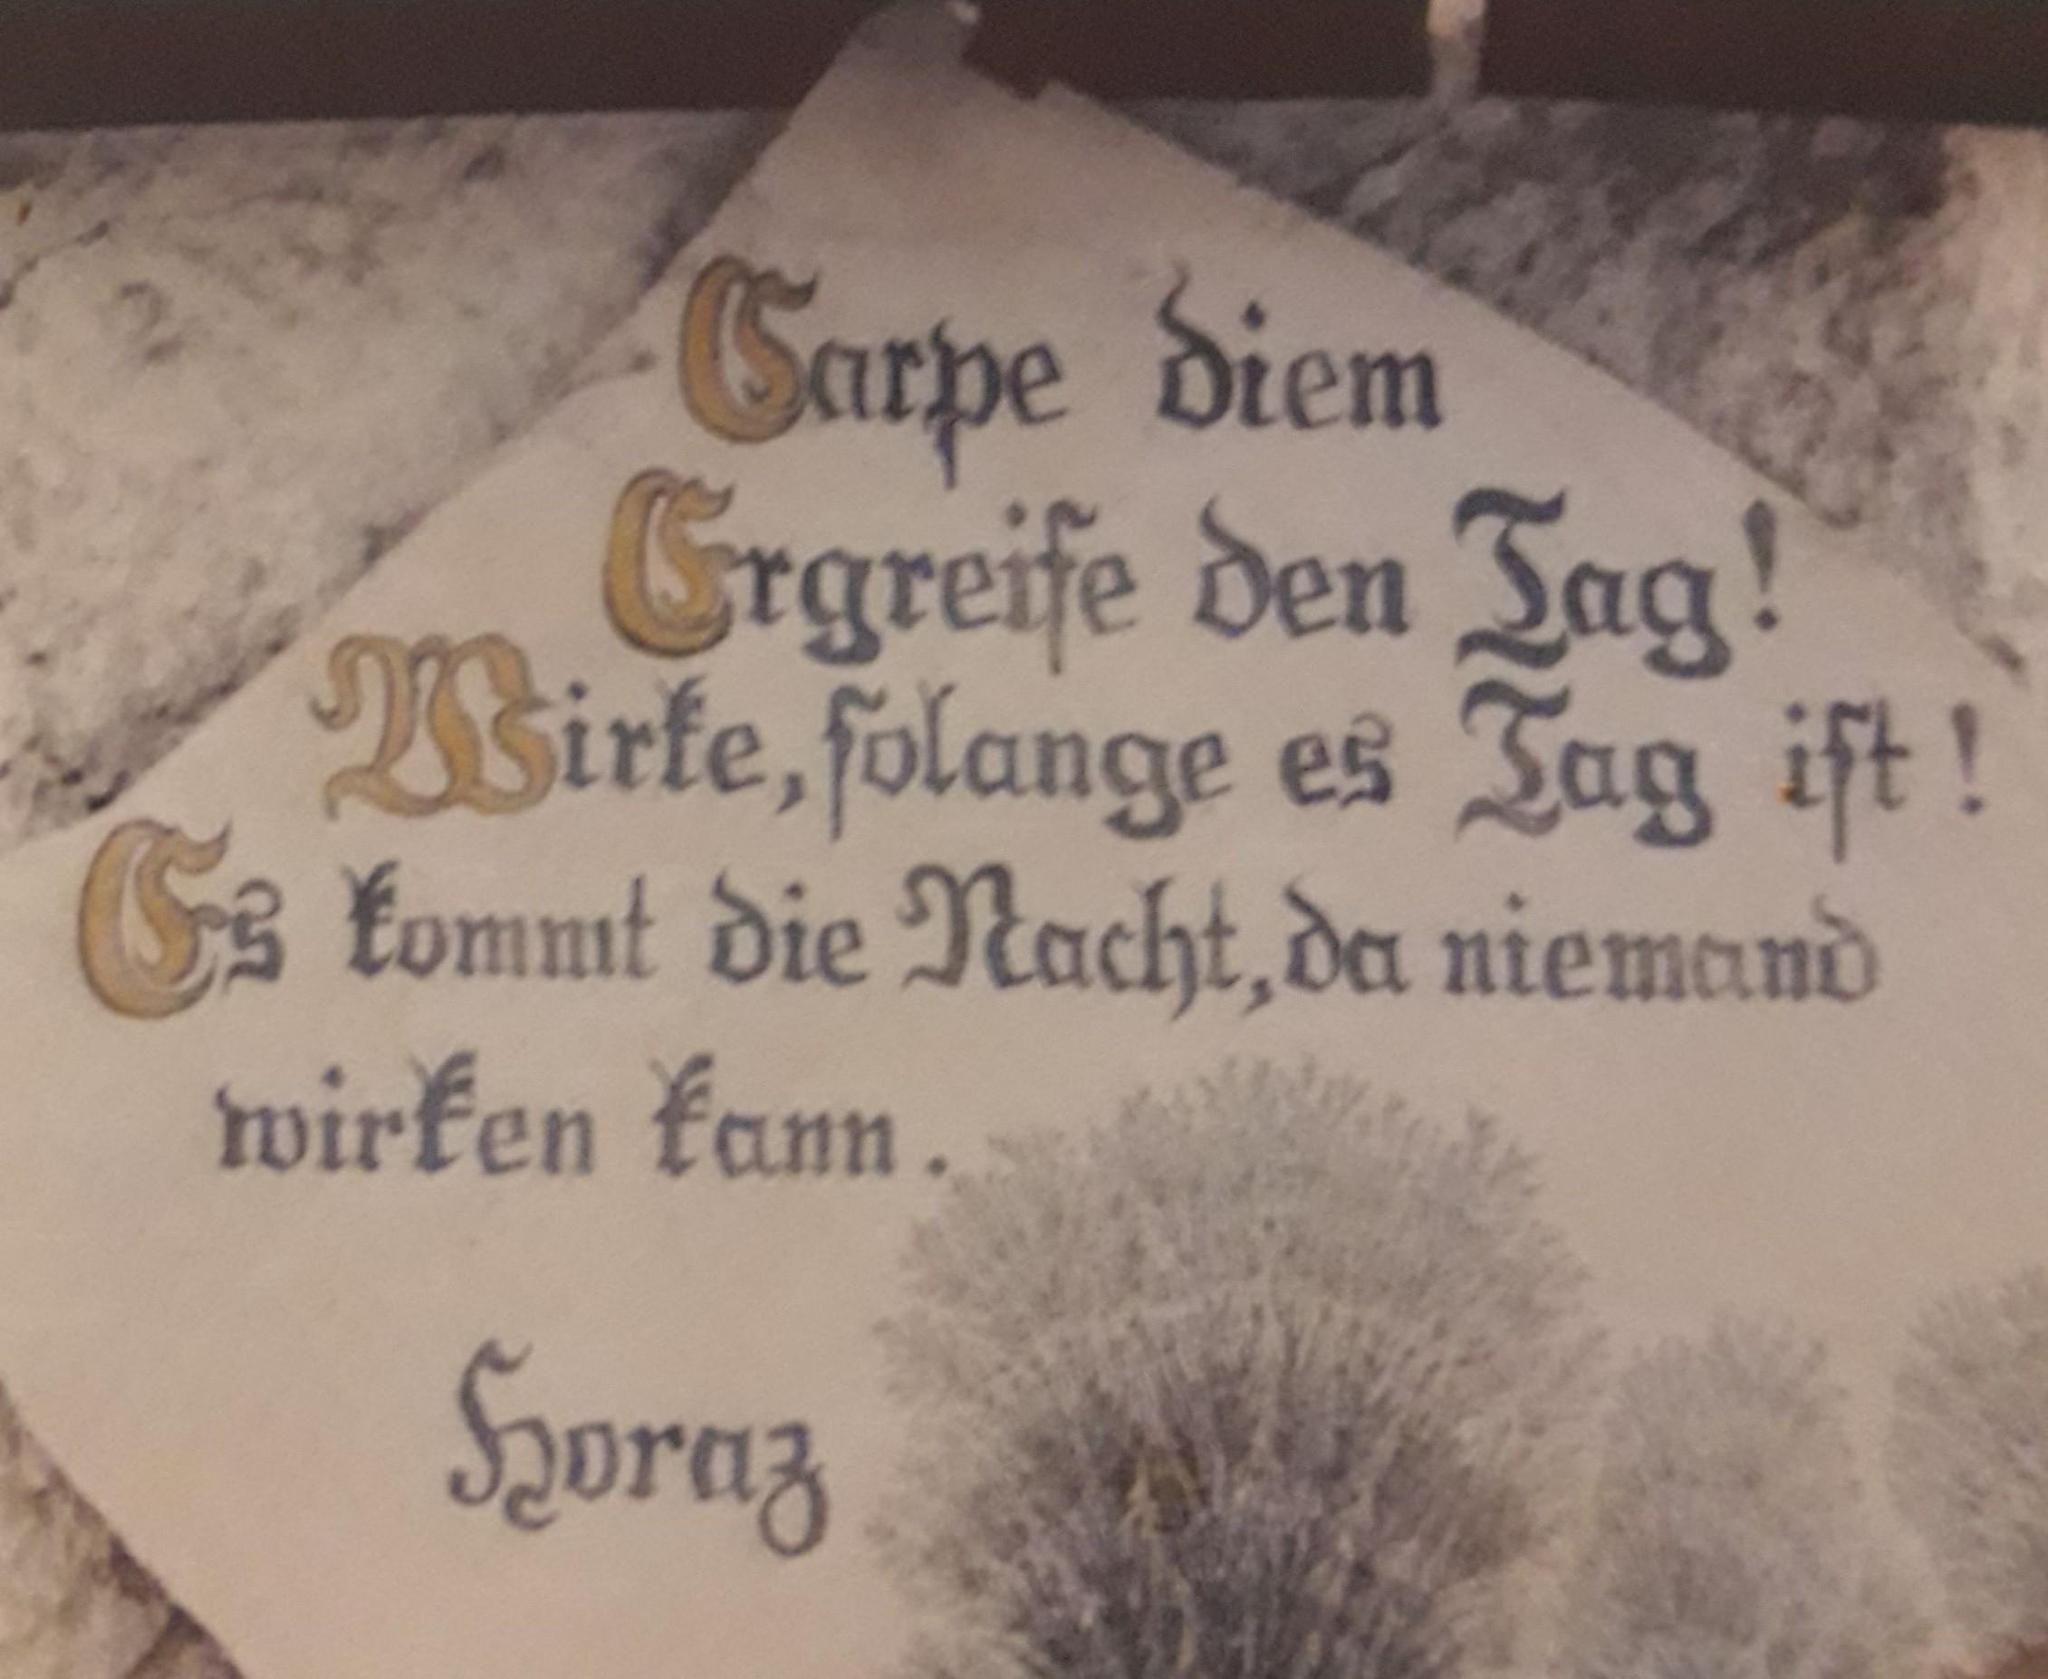 Carpe diem
Ergreife den Tag!
Wirke, solange es Tag ist!
Es kommt die Nacht, da niemand
wirken kann.
Horaz